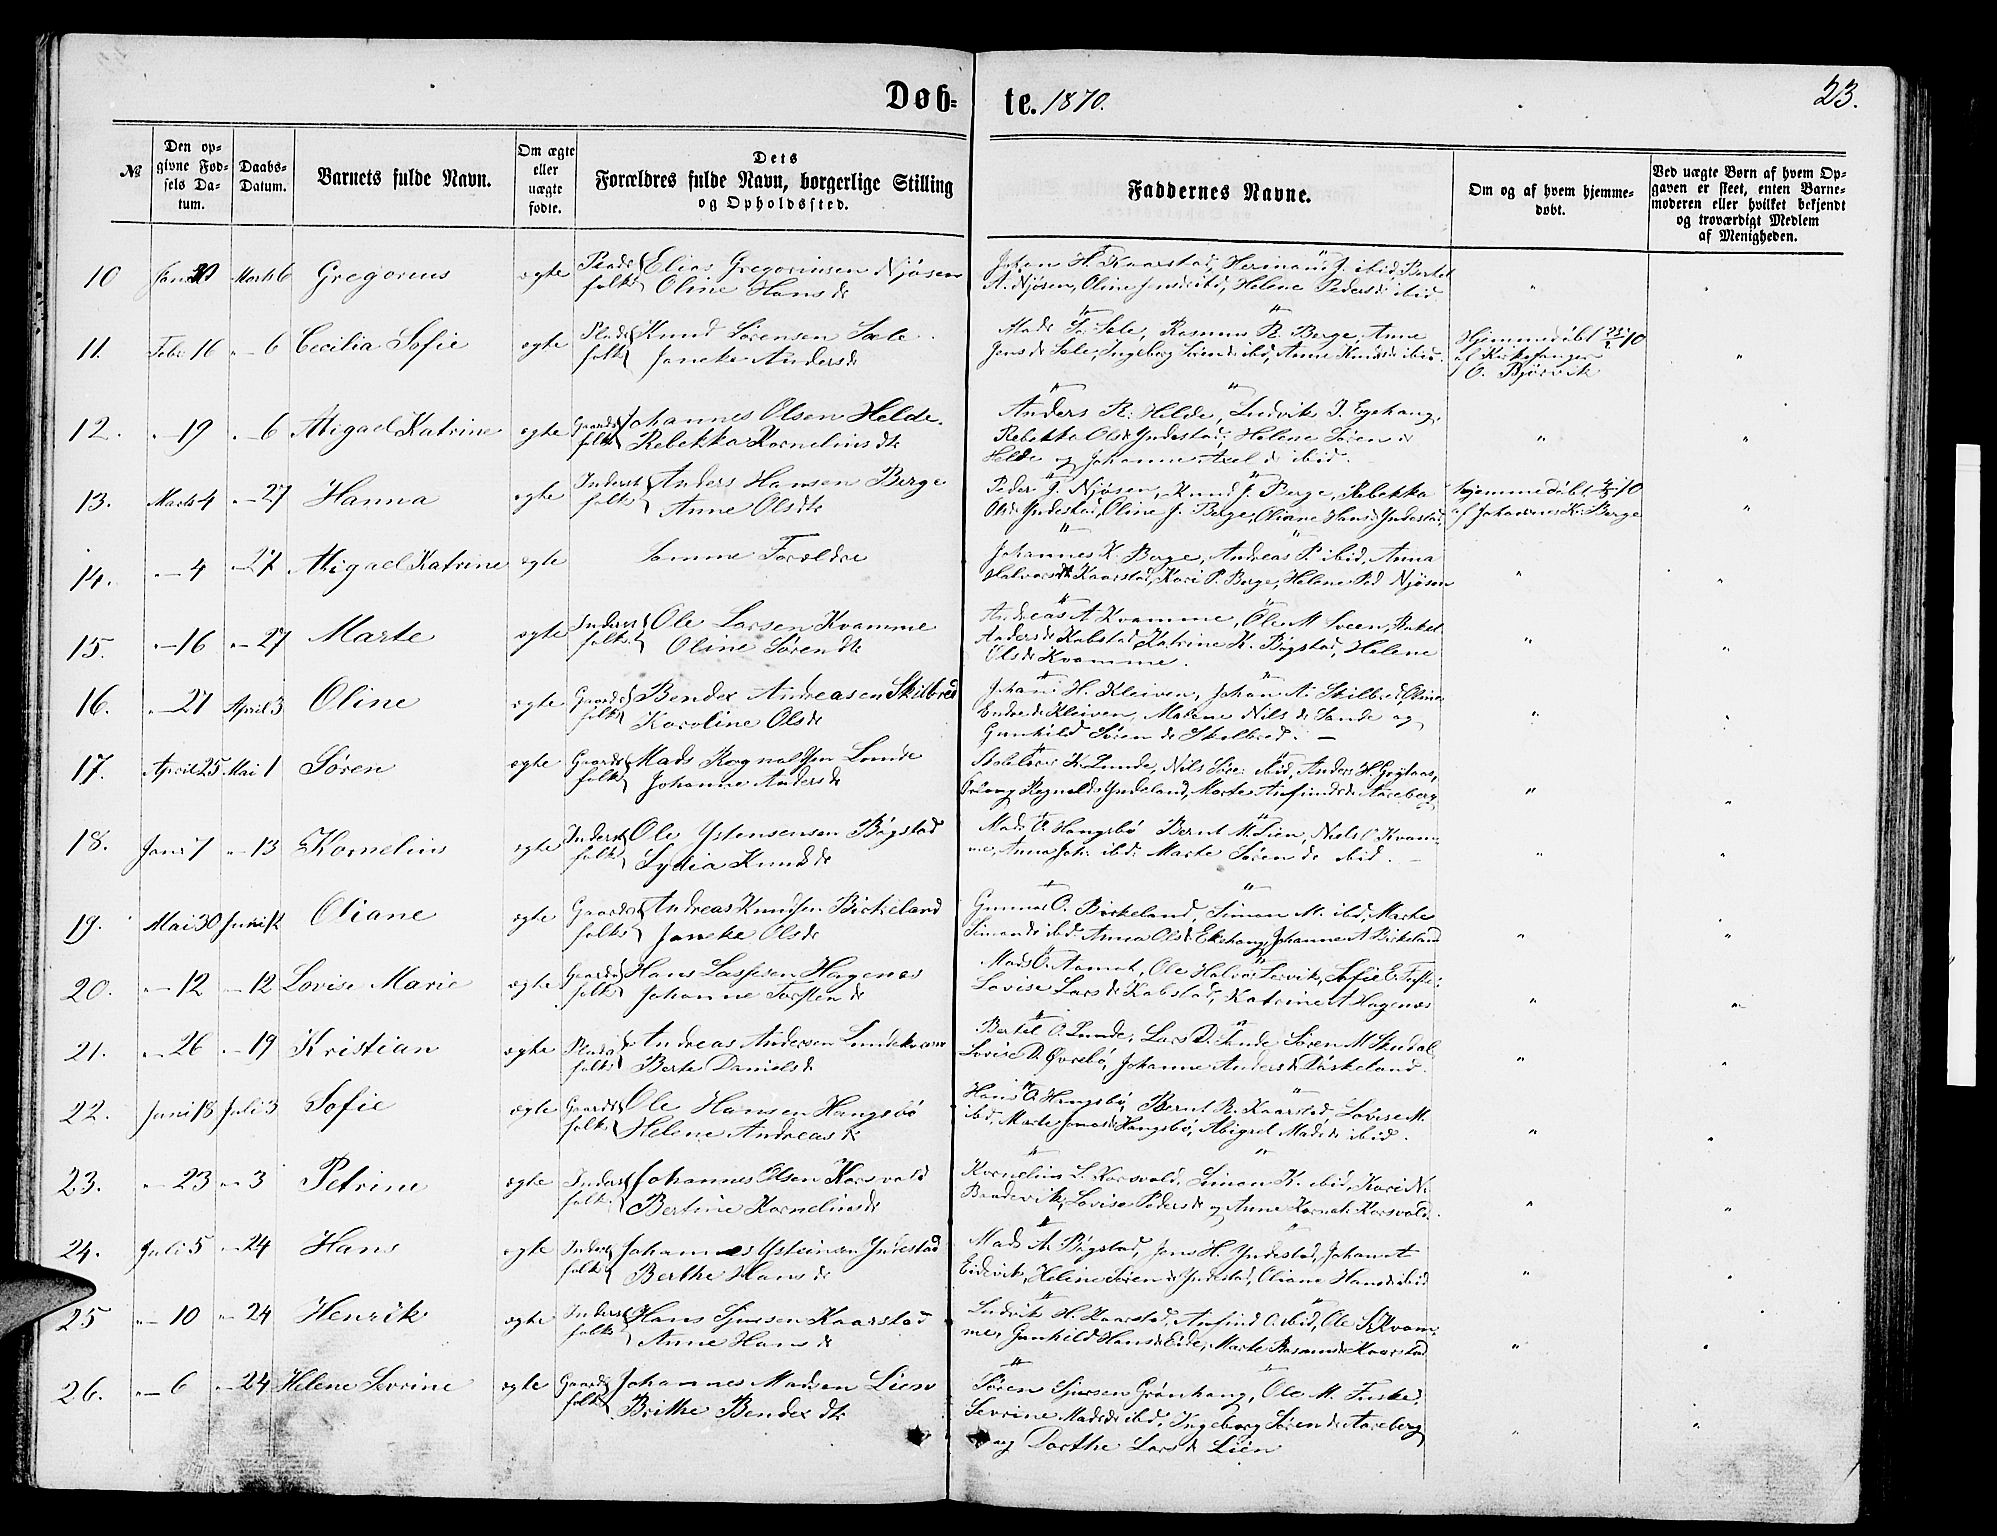 Døb-
te. 1870.
23.
№
Den op-
givne Fød-
sels Da-
tum.
Daabs-
Datum.
Barnets fulde Navn.
Om ægte
eller
uægte
fødte.
Dets
Forældres fulde Navn, borgerlige Stilling
og Opholdssted.
Faddernes Navne.
Om og af hvem hjemme-
døbt.
Ved uægte Børn af hvem Op-
gaven er skeet, enten Barne-
moderen eller hvilket bekjendt
og troværdigt Medlem
af Menigheden.
10 Marts 6 Gregorius ægte Plads Elias Gregoriusen Njøsen
folk Oline Hansdt
Johan H. Kaarstad, Herman J. ibid, Bertel
A. Njøsen, Oline Jensdt ibid, Helene Pedersdt ibid
11. Febr 16 "–6 Cecilia Sofie ægte Plads Knud Sørensen Sæle
folk Janeke Andersdt
Mads Sæle, Rasmus R. Berge, Anne
Jensdt Sele, Ingeborg ibid, Anne Knudsdt ibid.
Hjemmedøbt
af Kirkesanger
O. Bjørvik
12. "–19 "–6 Abigael Katrine ægte Gaards Johannes Olsen Helde.
folk Rebekka Korneliusdt
Anders R. Helde, Ludvik J. Egehaug,
Rebekka Olsdt Yndestad, Helene Sørendt
Helde og Johanne Axeldt ibid.
13. Marts 4 "–27 Hanna ægte Inderst Anders Hansen Berge
folk Anne Olsdt
Peder J. Njøsen, Knud J. Berge, Rebekka
Olsdt Yndestad, Oline J. Berge, Oliane Hansdt Yndestad
hjemmedøbt
af Johannes K. Berge
14. "–4 "–27 Abigael Katrine ægte Samme Forældre
Johannes K. Berge, Andreas P. ibid, Anna
Halvorsdt Kaarstad, Kari P. Berge, Helene Ped Njøsen
15. "–16 "–27 Marte ægte Inderst Ole Larsen Kvamme
folk Oline Sørendt
Andreas A Kvamme, Ole M Sveen,
Andersdt Kobstad Katrine K. Bøgstad, Helene
Olsdt Kvamme.
16. "–27 April 3 Oline ægte Gaards Bendex Andreasen Skilbred
folk Karoline Olsdt
Johan H. Kleiven, Johan A. Skilbred, Oline
Endredt Kleiven, Malene Nilsdt Sande og
Gunhild Sørendt Skilbred. –
17. April 25 Mai 1 Søren ægte Gaards Mads Rognaldsen Lunde
folk Johanne Andersdt
K. Lunde, Nils ibid, Anders H.
Rognaldsdt Yndeland, Marte Anfindsdt Aareberg
18. Janr 7 "–13 Kornelius ægte Inderst Ole Ystensensen Bøgstad
folk Lydia Knudsdt
Mads O. Hangsbø Bernt M. Lien, Nils O Kvam-
me, Anna Joh. ibid. Marte Sørendt ibid. –
19. Mai 30 Juni 12 Oliane ægte Gaards Andreas Knudsen Birkeland
folk Janeke Olsdt
Gunnar O. Birkeland, Simon M. ibid, Marte
Simonsdt ibid Anna Olsdt Johanne A Birkeland
20. "–12 "–12 Lovise Marie ægte Gaards Hans Lassesen Hagenes
folk Johanne Torstendt
Mads O. Aamot, Ole Halvor Lervik, Sofie E.
Lovise Larsdt Kobstad, Katrine A Hagenes
21. "–26 "–19 Kristian ægte Plads Andreas Andersen Lundekvam
folk Berte Danielsdt
Bertel O. Lunde, Lars D. Lunde Søren M Skudal,
Lovise D. Øvrebø, Johanne Andersdt
22. Juni 13 Juli 3 Sofie ægte Gaards Ole Hansen Hangsbø
folk Helene Andreasdt
Hans O Hangsbø, Bernt R. Kaarstad, Lovise M.
ibid, Marte Jonasdt Hangsbø, Abigael Madsdt ibid.
23. "–23 "–3 Petrine ægte Inderst Johannes Olsen Korsvold
folk Bertine Korneliusdt
Kornelius L. Korsvold, Simon K. ibid, Kari N.
Lovise Pedersdt og Anne Korneli Korsvold.
24. Juli 5 "–24 Hans ægte Inderst Johannes Ysteinsen Yndestad
folk Berthe Hansdt
Mads A. Bøgstad, Jens H. Yndestad, Johan A
Eidevik, Helene Sørendt Yndestad, Oliane Hansdt ibid
25 "–10 "–24 Henrik ægte Inderst Hans Sjursen Kaarstad
folk Anne Hansdt
Ludvik H. Kaarstad, Anfind O. ibid, Ole S. Kvam-
me, Gunhild Hansdt Eide, Marte Rasmusdt Kaarstad
26. "–6 "–24 Helene Sevrine ægte Gaards Johannes Madsen Lien
folk Brithe Bendexdt
Søren Sjursen Grønhaug, Ole M. Fuske,
Sevrine Madsdt ibid, Ingeborg Sørendt Aareberg
og Dorthe Larsdt Lien